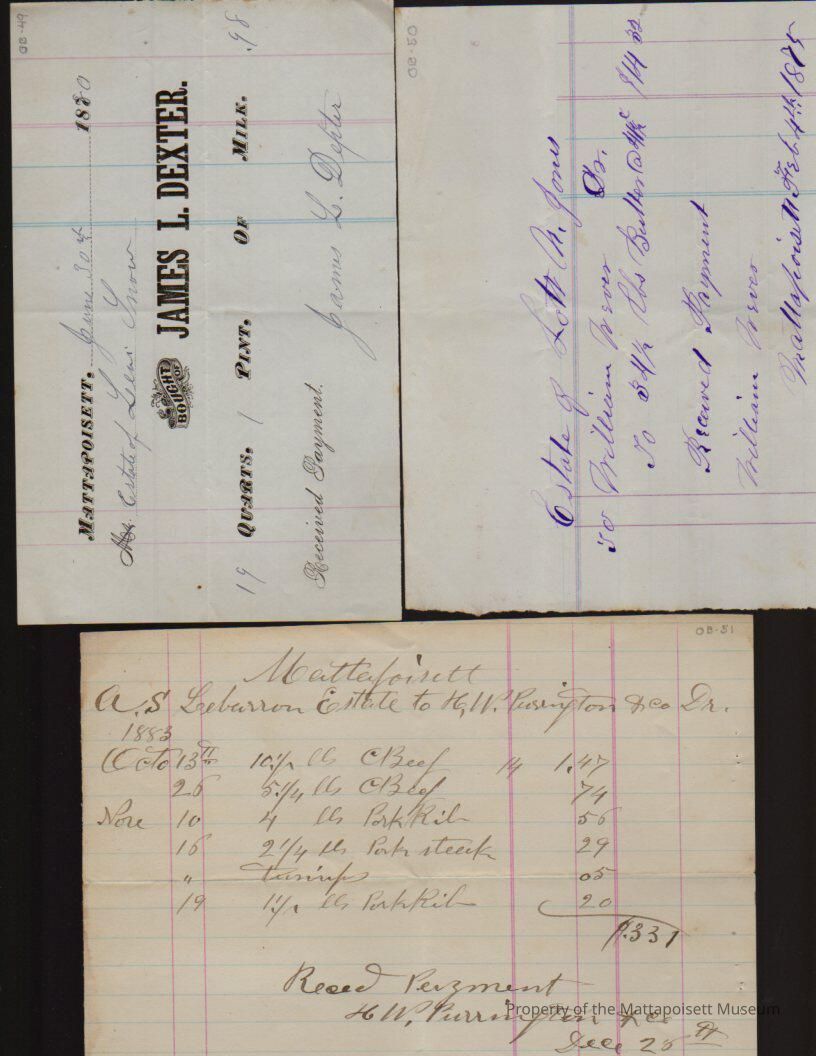 OB-49
MATTAPOISETT, June 30th 1880
Estate of Levi Snow
BOUGHT OF JAMES L. DEXTER.
19 QUARTS, 1 PINT, OF MILK. .98
Received Payment.
James L. Dexter
OB-50
Estate of Lott N. Jones
To William Wever Dr.
To 34½ lbs Butter @
Received Payment
William Wever
Mattapoisett Feb 4th 1875
OB-51
Mattapoisett
A. S Lebarron Estate to H, W. Purrington & Co Dr.
1883
Octo 13th 10½ lbs C Beef 14 1.47
26 5¼ lbs C Beef 74
Nove 10 4 lbs Pork Rib 56
16 2¼ lbs Pork steak 29
" turnips 05
19 1½ lbs Pork Rib 20
$.331
Recd Payment
H W, Purrington & Co
Dec 25th
Property of the Mattapoisett Museum